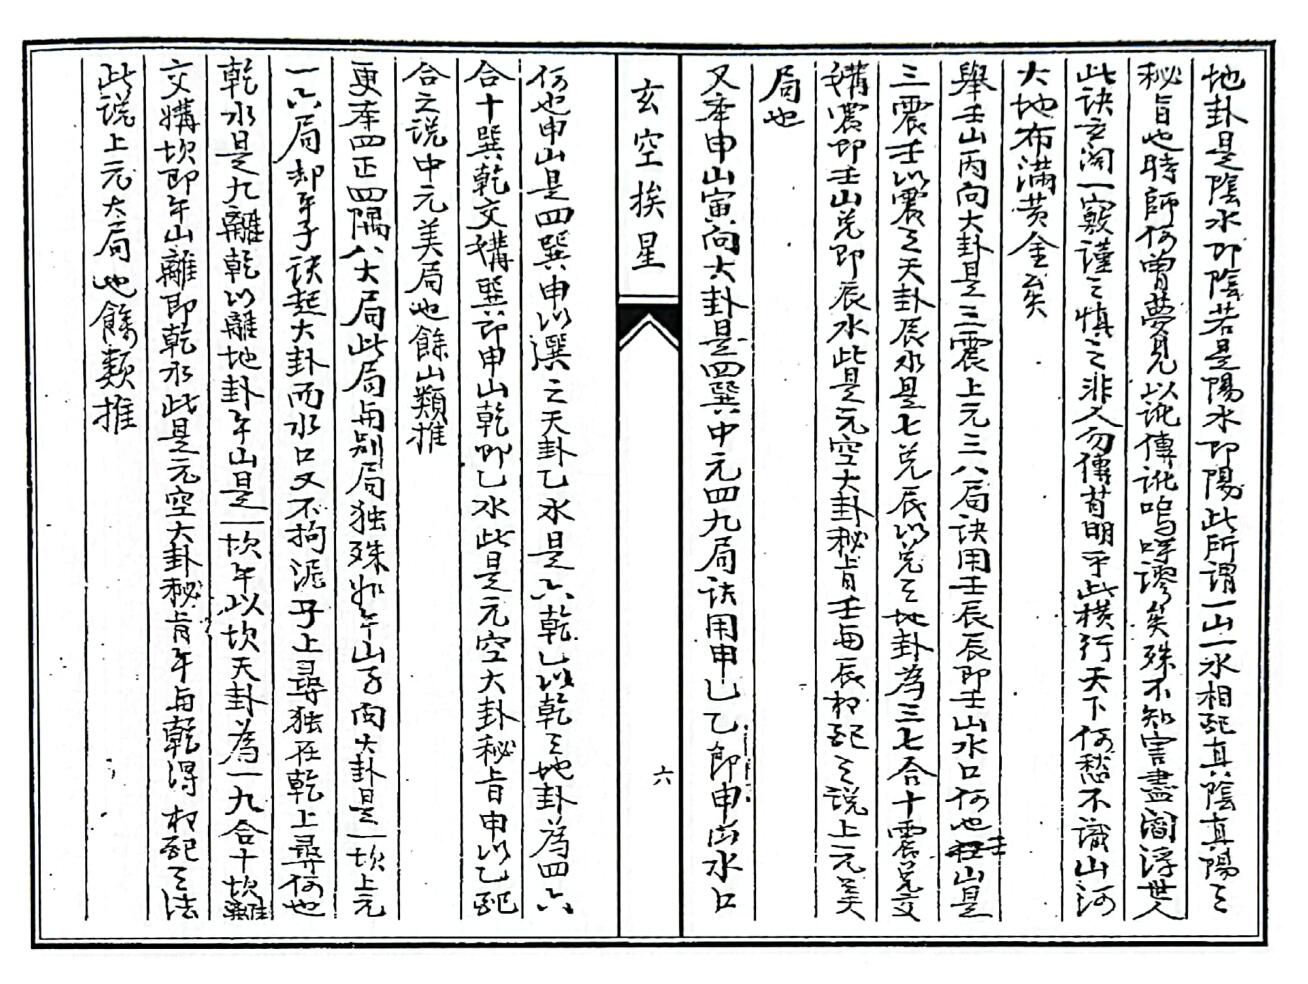 地卦是陰水即陰若是陽水即陽此所謂一山一水相配真陰真陽之
秘旨也時師何曾夢見以訛傳訛嗚呼謬矣殊不知害盡閻浮世人
此訣玄関一竅謹之慎之非人勿傳苟明乎此横行天下何愁不識山河
大地布滿黄金矣
舉壬山丙向大卦是三震上元三八局訣用壬辰辰即壬山水口何也壬山是
三震壬以震之天卦辰水是七兌辰以兌之地卦為三七合十震兌交
媾震即壬山兌即辰水此是元空大卦秘旨壬與辰相配之說上元美
局也
又本申山寅向大卦是四巽中元四九局訣用申乙乙即申山水口
玄空挨星
六
何也申山是四巽申以選之天卦乙水是六乾乙以乾之地卦為四六
合十巽乾交媾巽即申山乾即乙水此是元空大卦秘旨申以乙配
合之說中元美局也餘山類推
更奉四正四隅八大局此局與别局独殊如午山子向大卦是一坎上元
一六局却午子訣起大卦而水口又不拘泥子上尋独在乾上尋何也
乾水是九離乾以離地卦午山是一坎午以坎天卦為一九合十坎離
交媾坎即午山離即乾水此是元空大卦秘旨午與乾得相配之法
此說上元大局也餘類推